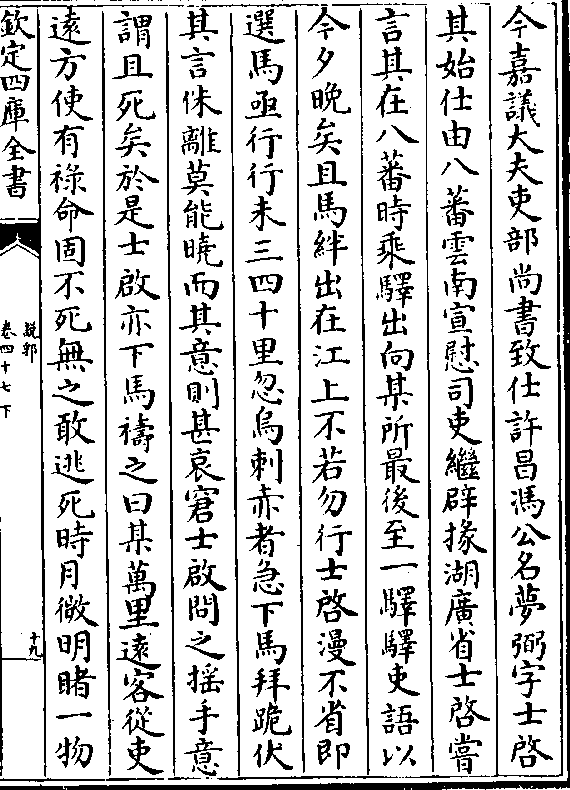 今嘉議大夫吏部尚書致仕許昌馮公名夢弼字士啓
其始仕由八蕃雲南宣慰司吏繼辟掾湖廣省士啓嘗
言其在八蕃時乘驛出向某所最後至一驛驛吏語以
今夕晚矣且馬絆出在江上不若勿行士啓漫不省即
選馬亟行行未三四十里忽烏刺赤者急下馬拜跪伏
其言侏離莫能曉而其意則甚哀窘士啟問之揺手意
謂且死矣於是士啟亦下馬禱之曰某萬里逺客從吏
逺方使有禄命固不死無之敢逃死時月微明睹一物
欽定四庫全書
說郛
卷四十七下
十九